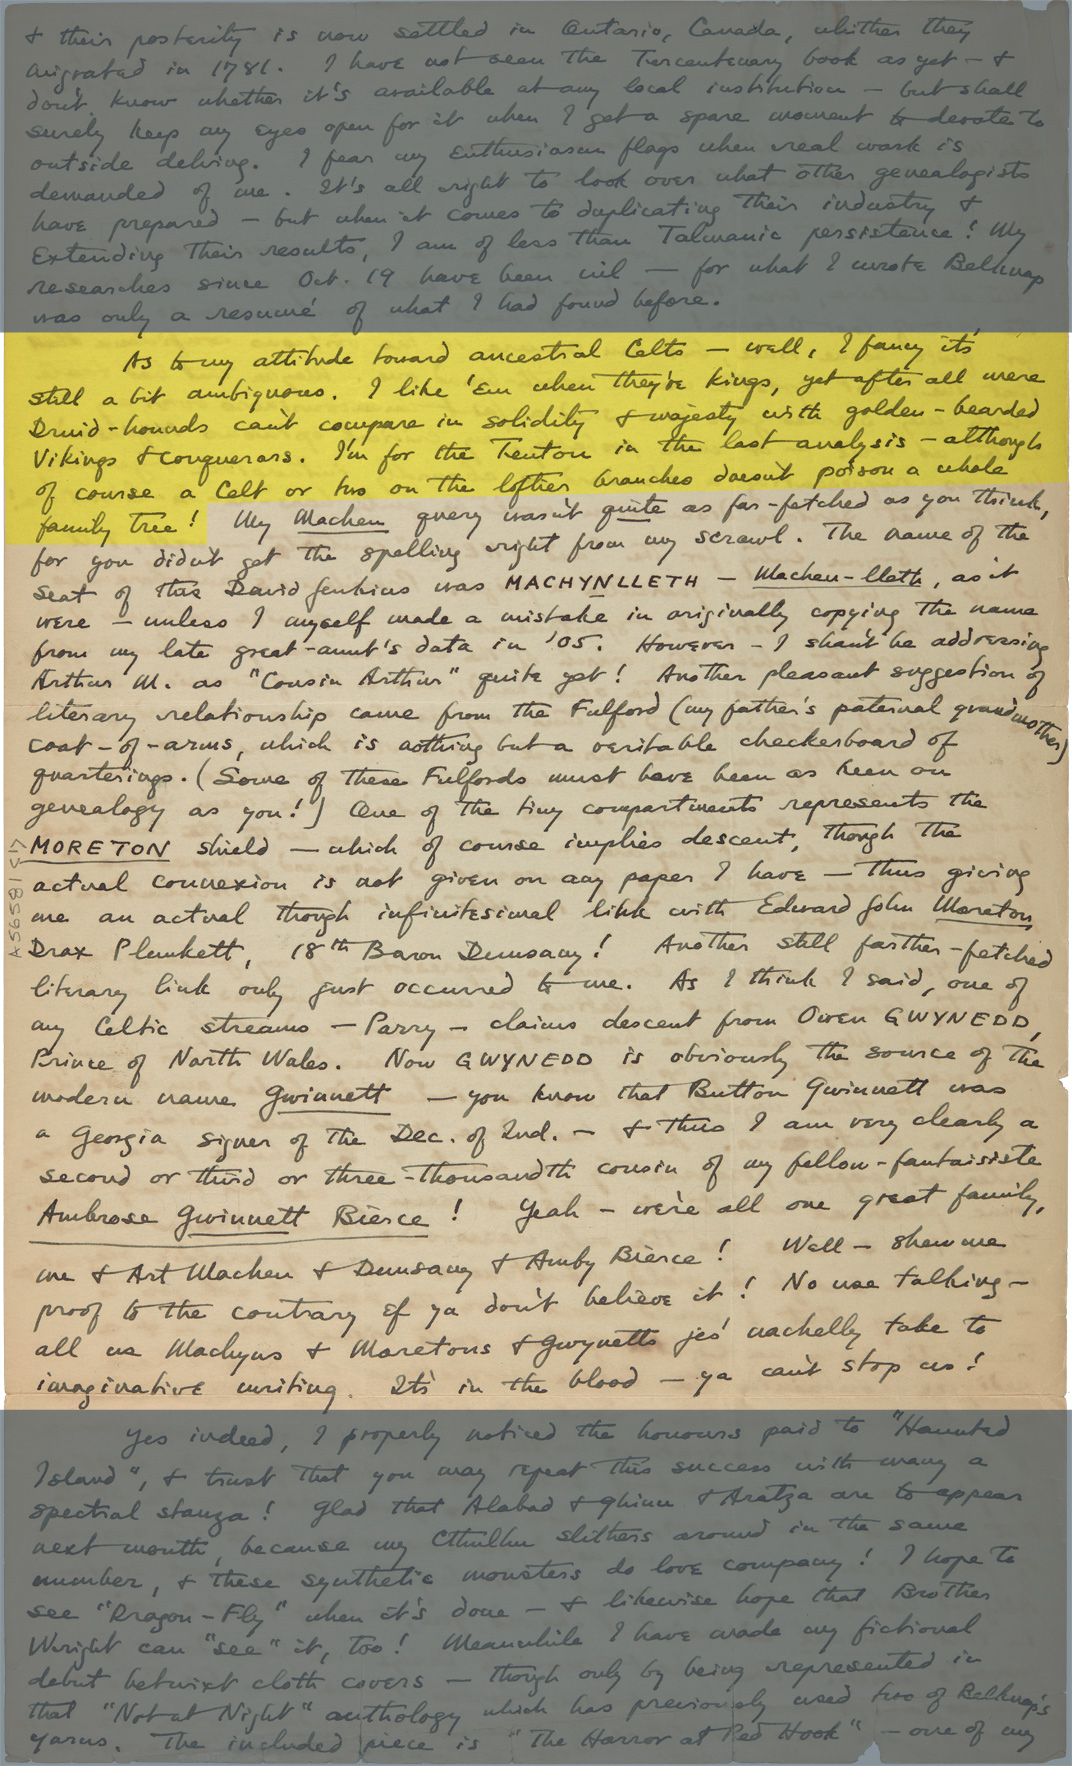 & their posterity is now settled in Ontario, Canada, whither they
migrated in 1781. I have not seen the Tercentenary book as yet — &
don't know whether it's available at any local institution — but shall
surely keep my eyes open for it when I get a spare moment to devote to
outside delving. I fear my enthusiasm flags when real work is
demanded of me. It's all right to look over what other genealogists
have prepared — but when it comes to duplicating their industry &
extending their results, I am of less than Talmanic persistence! My
researches since Oct. 19 have been nil — for what I wrote Belknap
was only a resumé of what I had found before.
As to my attitude toward ancestral Celts — well, I fancy it's
still a bit ambiguous. I like 'em when they're kings, yet after all mere
Druid-hounds can't compare in solidity & majesty with golden-bearded
Vikings & conquerors. I'm for the Teuton in the last analysis — although
of course a Celt or two on the loftier branches doesn't poison a whole
family tree! My Machen query wasn't quite as far-fetched as you think,
for you didn't get the spelling right from my scrawl. The name of the
seat of this David Jenkins was MACHYNLLETH — Machen-lleth, as it
were — unless I myself made a mistake in originally copying the name
from my late great-aunt's data in '05. However — I shan't be addressing
Arthur M. as "Cousin Arthur" quite yet! Another pleasant suggestion of
literary relationship came from the Fulford (my father's paternal grandmother)
coat-of-arms, which is nothing but a veritable checkerboard of
quarterings. (Some of these Fulfords must have been as keen on
genealogy as you!) One of the tiny compartments represents the
MORETON shield — which of course implies descent, though the
actual connexion is not given on any paper I have — thus giving
me an actual though infinitesimal link with Edward John Moreton
Drax Plunkett, 18th Baron Dunsany! Another still farther-fetched
literary link only just occurred to me. As I think I said, one of
my Celtic streams — Parry — claims descent from Owen GWYNEDD,
Prince of North Wales. Now GWYNEDD is obviously the source of the
modern name Gwinnett — you know that Button Gwinnett was
a Georgia signer of the Dec. of Ind. — & thus I am very clearly a
second or third or three-thousandth cousin of my fellow-fantaisiste
Ambrose Gwinnett Bierce! Yeah — we're all one great family,
me & Art Machen & Dunsany & Amby Bierce! Well — shew me
proof to the contrary ef ya don't believe it! No use talking —
all us Machyns & Moretons & Gwynetts jes' nachelly take to
imaginative writing. It's in the blood — ya can't stop us!
Yes indeed, I properly noticed the honours paid to "Haunted
Island", & trust that you may repeat this success with many a
spectral stanza! Glad that Alabad & Ghinu & Aratza are to appear
next month, because my Cthulhu slithers around in the same
number, & these synthetic monsters do love company! I hope to
see "Dragon-Fly" when it's done — & likewise hope that Brother
Wright can "see" it, too! Meanwhile I have made my fictional
debut betwixt cloth covers — though only by being represented in
that "Not at Night" anthology which has previously used two of Belknap's
yarns. The included piece is "The Horror at Red Hook" — one of my